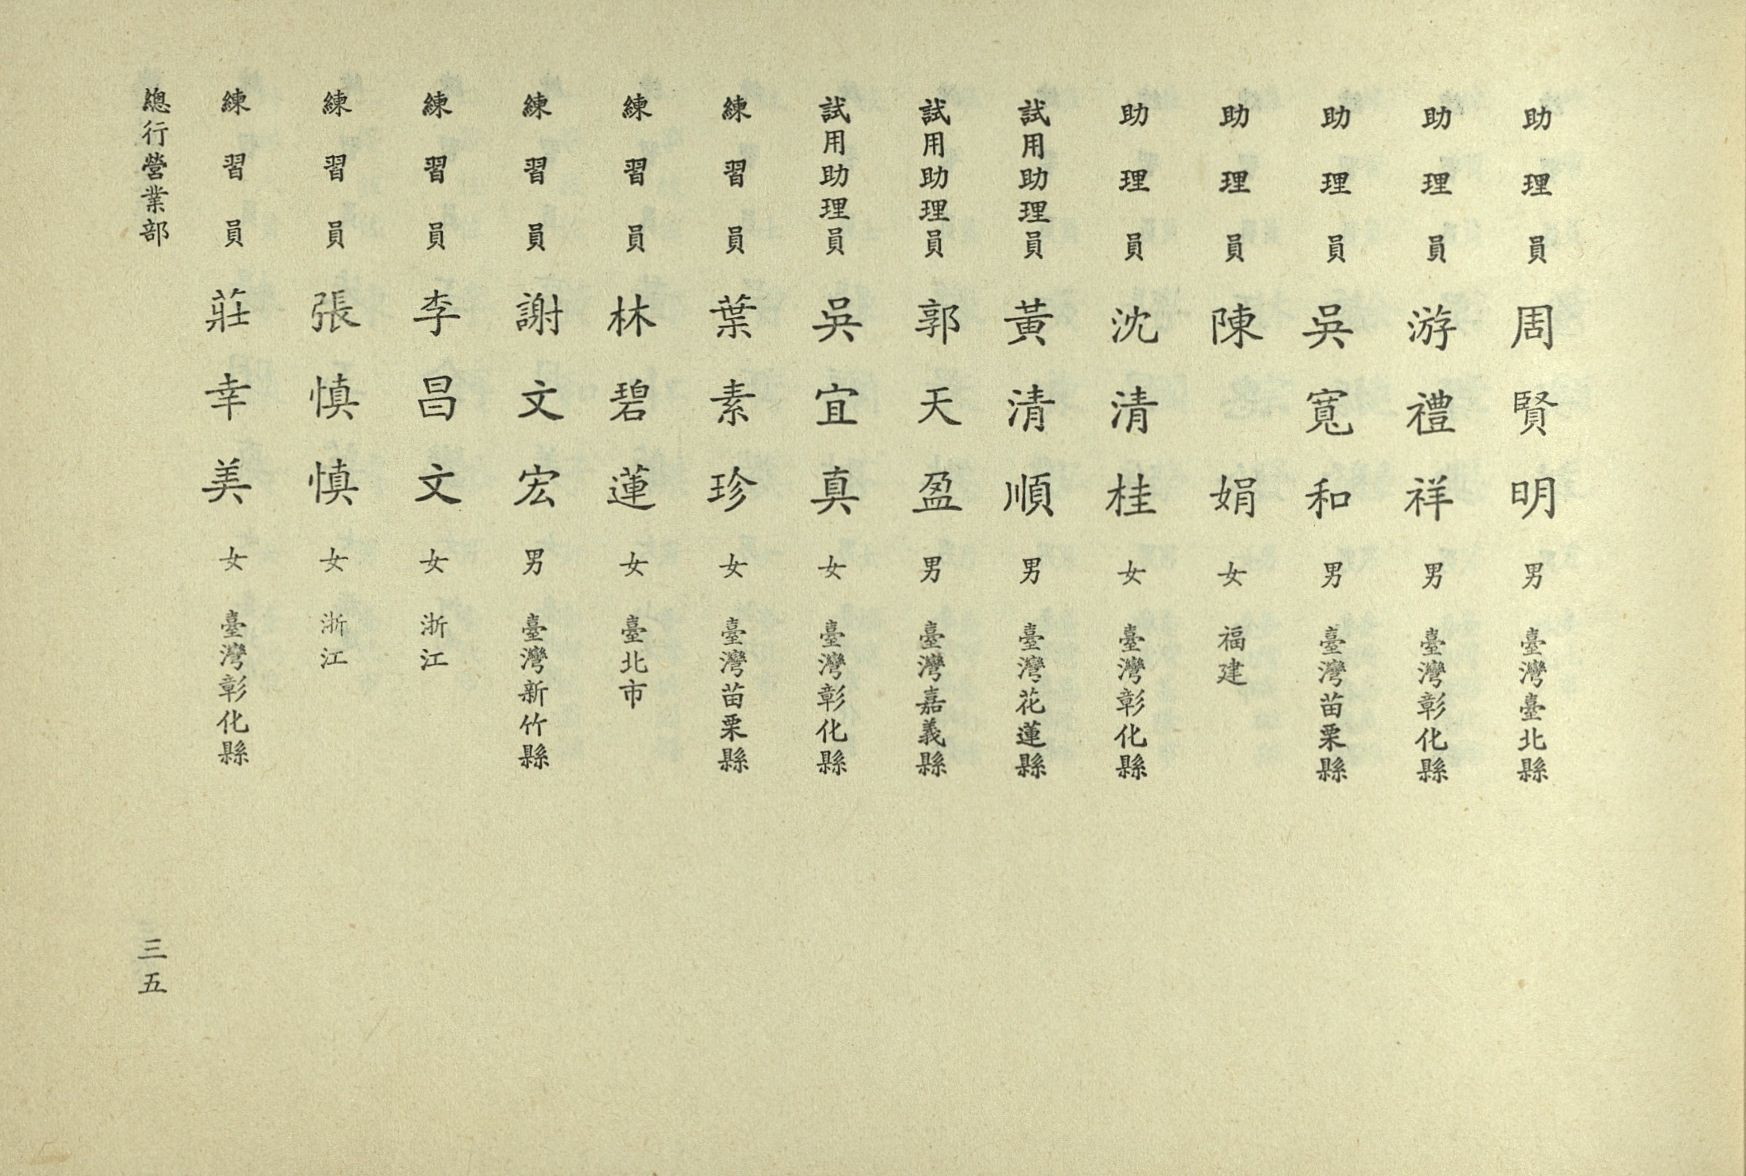 助理員 周賢明 男 臺灣臺北縣
助理員 游禮祥 男 臺灣彰化縣
助理員 吳寬和 男 臺灣苗栗縣
助理員 陳娟 女 福建
助理員 沈清桂 女 臺灣彰化縣
試用助理員 黃清順 男 臺灣花蓮縣
試用助理員 郭天盈 男 臺灣嘉義縣
試用助理員 吳宜真 女 臺灣彰化縣
練習員 葉素珍 女 臺灣苗栗縣
練習員 林碧蓮 女 臺北市
練習員 謝文宏 男 臺灣新竹縣
練習員 李昌文 女 浙江
練習員 張慎慎 女 浙江
練習員 莊幸美 女 臺灣彰化縣
總行營業部 三五